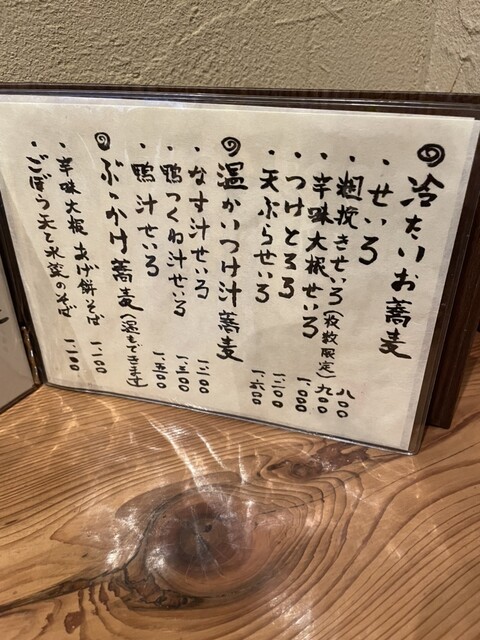 冷たいお蕎麦
・せいろ 八〇〇
・粗挽きせいろ(枚数限定) 九〇〇
・辛味大根せいろ 一、〇〇〇
・つけとろろ 一、二〇〇
・天ぷらせいろ 一、六〇〇
温かいつけ汁蕎麦
・なす汁せいろ 一、二〇〇
・鴨つくね汁せいろ 一、三〇〇
・鴨汁せいろ 一、五〇〇
ぶっかけ蕎麦(温もできます)
・辛味大根 あげ餅そば 一、一〇〇
・ごぼう天と水菜のそば 一、二〇〇